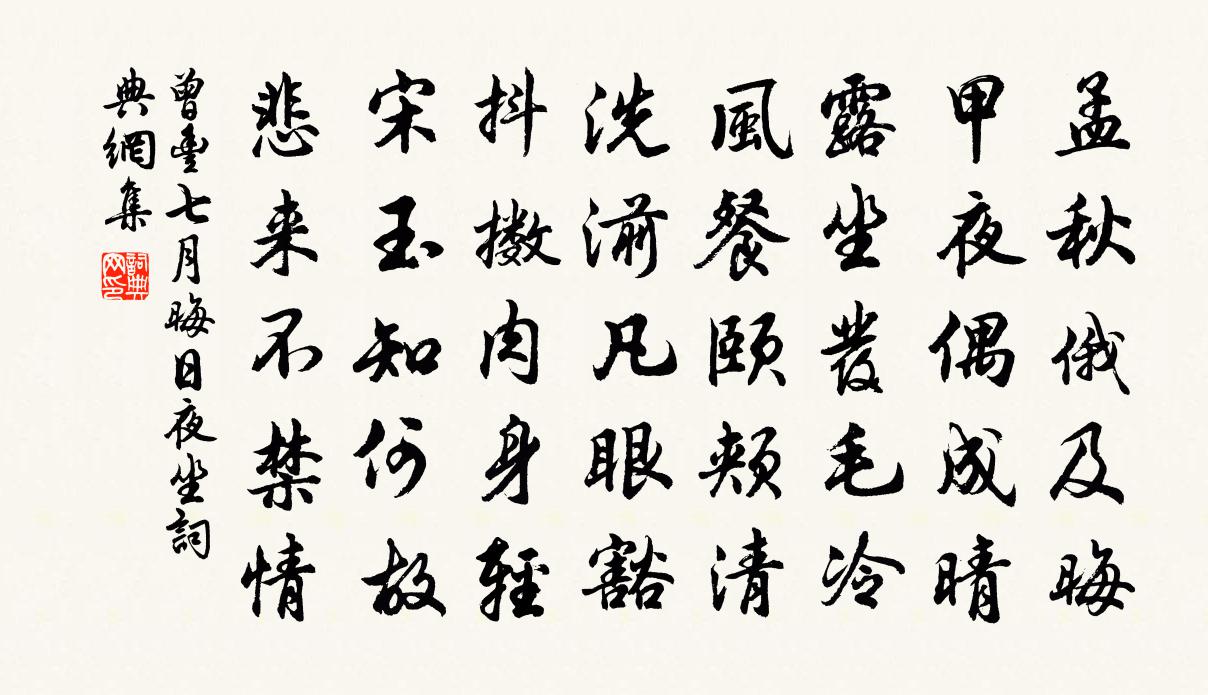 孟秋俄及晦
甲夜偶成晴
露坐發毛冷
風餐頤頰清
洗湔凡眼豁
抖擻肉身輕
宋玉知何故
悲来不禁情
曾豐七月晦日夜坐詞
典網集
詞典
网印